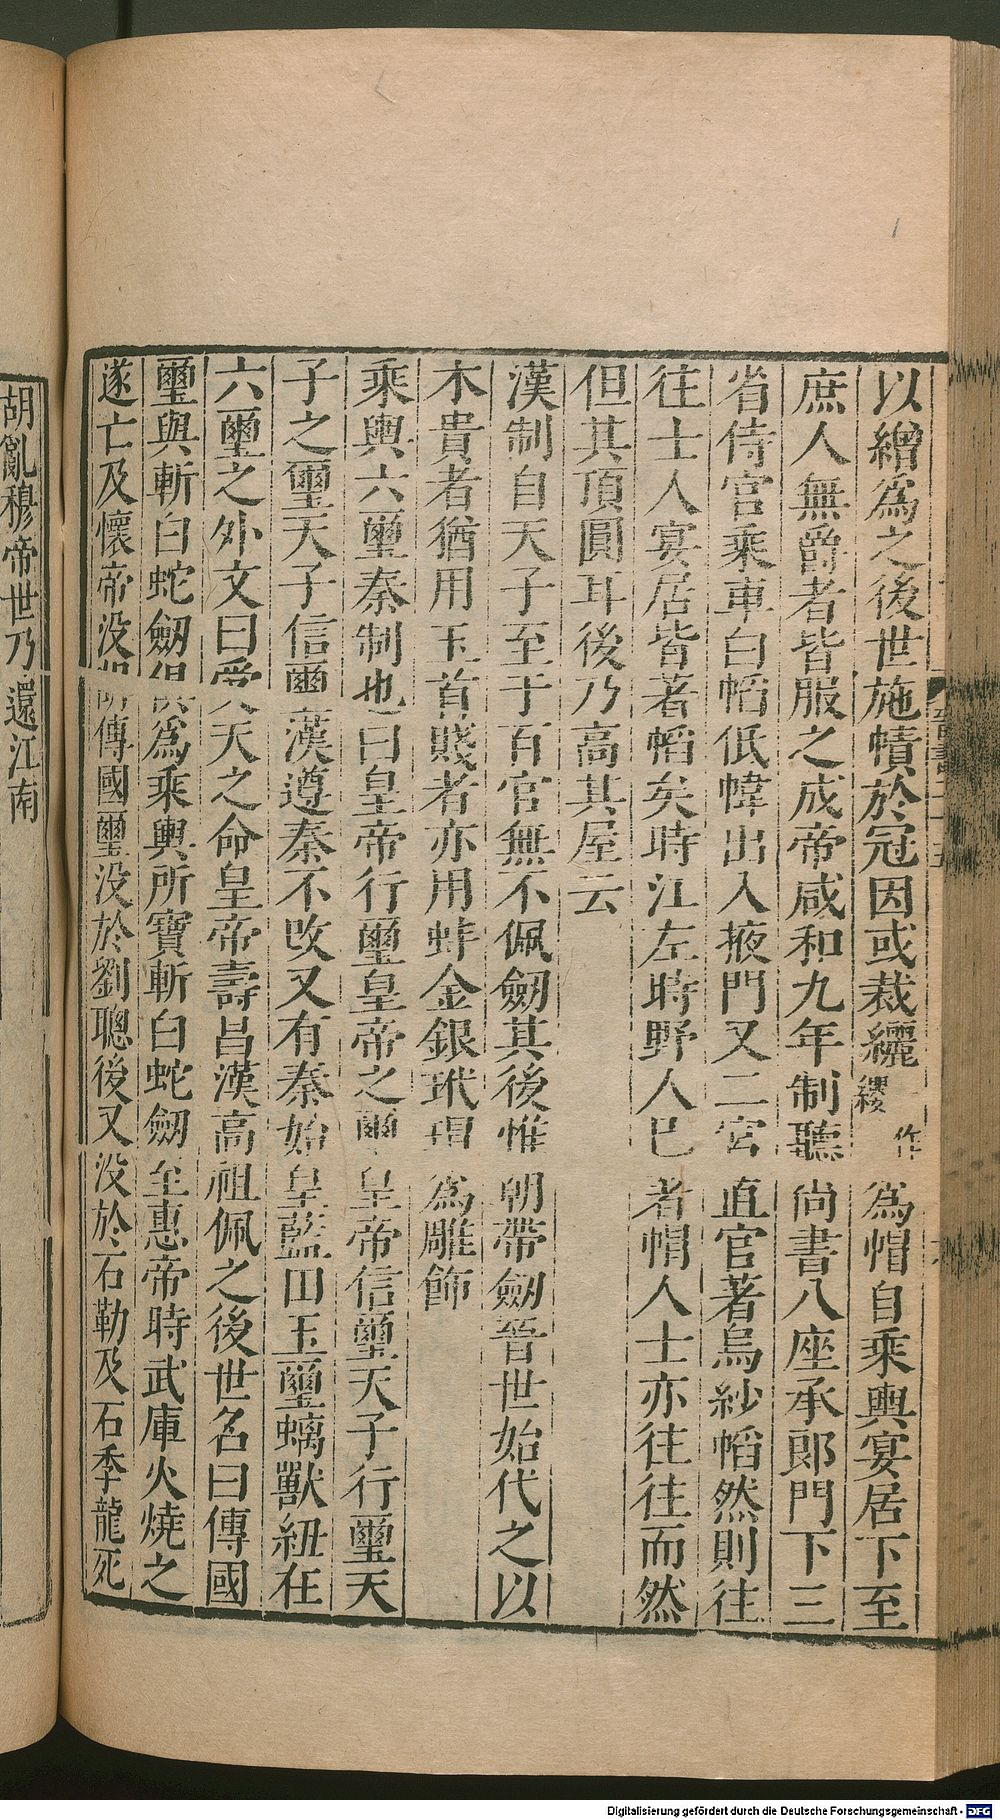 以繒爲之後世施幘於冠因或裁纚纓一作爲帽自乘輿宴居下至
庶人無爵者皆服之成帝咸和九年制聽尚書八座丞郎門下三
省侍官乘車白帢低幃出入掖門又二宮直官著烏紗帢然則往
往士人宴居皆著帢矣時江左時野人已著帽人士亦往往而然
但其頂圓耳後乃高其屋云
漢制自天子至于百官無不佩劒其後惟朝帶劒晉世始代之以
木貴者猶用玉首賤者亦用蚌金銀玳瑁爲雕飾
乘輿六璽秦制也曰皇帝行璽皇帝之璽皇帝信璽天子行璽天
子之璽天子信璽漢遵秦不改又有秦始皇藍田玉璽螭獸紐在
六璽之外文曰受天之命皇帝壽昌漢高祖佩之後世名曰傳國
璽與斬白蛇劒俱爲乘輿所寶斬白蛇劒至惠帝時武庫火燒之
遂亡及懷帝没胡傳國璽没於劉聰後又没於石勒及石季龍死
胡亂穆帝世乃還江南
Digitalisierung gefördert durch die Deutsche Forschungsgemeinschaft - DFG